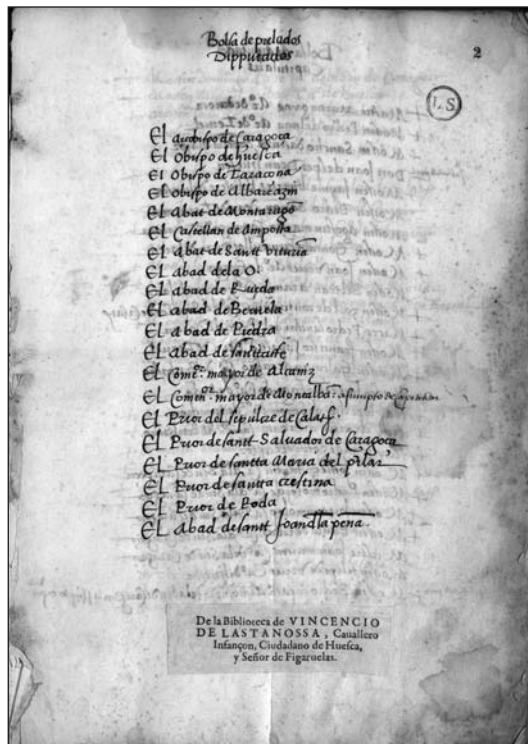 Bolsa de prelados
Dipputados
2
L S
El Arcobispo de Caragoca
El Obispo de huesca
El Obispo de Taracona
El Obispo de Albarrazin
El Abat de Montaragō
El Castellan de Amposta
El Abat de Santt Vituriā
El Abad dela O.
El Abad de Rueda
El Abad de Beruela
El Abad de Piedra
El Abad de santtaffe
El Comēor. mayor de Alcaniz
El Comēor. mayor de Montalbā:
El Prior del sepulcre de Calatf.
El Prior de santt Salvador de Caragoca
El Prior de santta Maria del pilar
El Prior de santta crestina
El Prior de Roda
El Abad de santt Joan dla pena.
De la Biblioteca de VINCENCIO
DE LASTANOSSA, Cauallero
Infançon, Ciudadano de Huesca,
y Señor de Figaruelas.